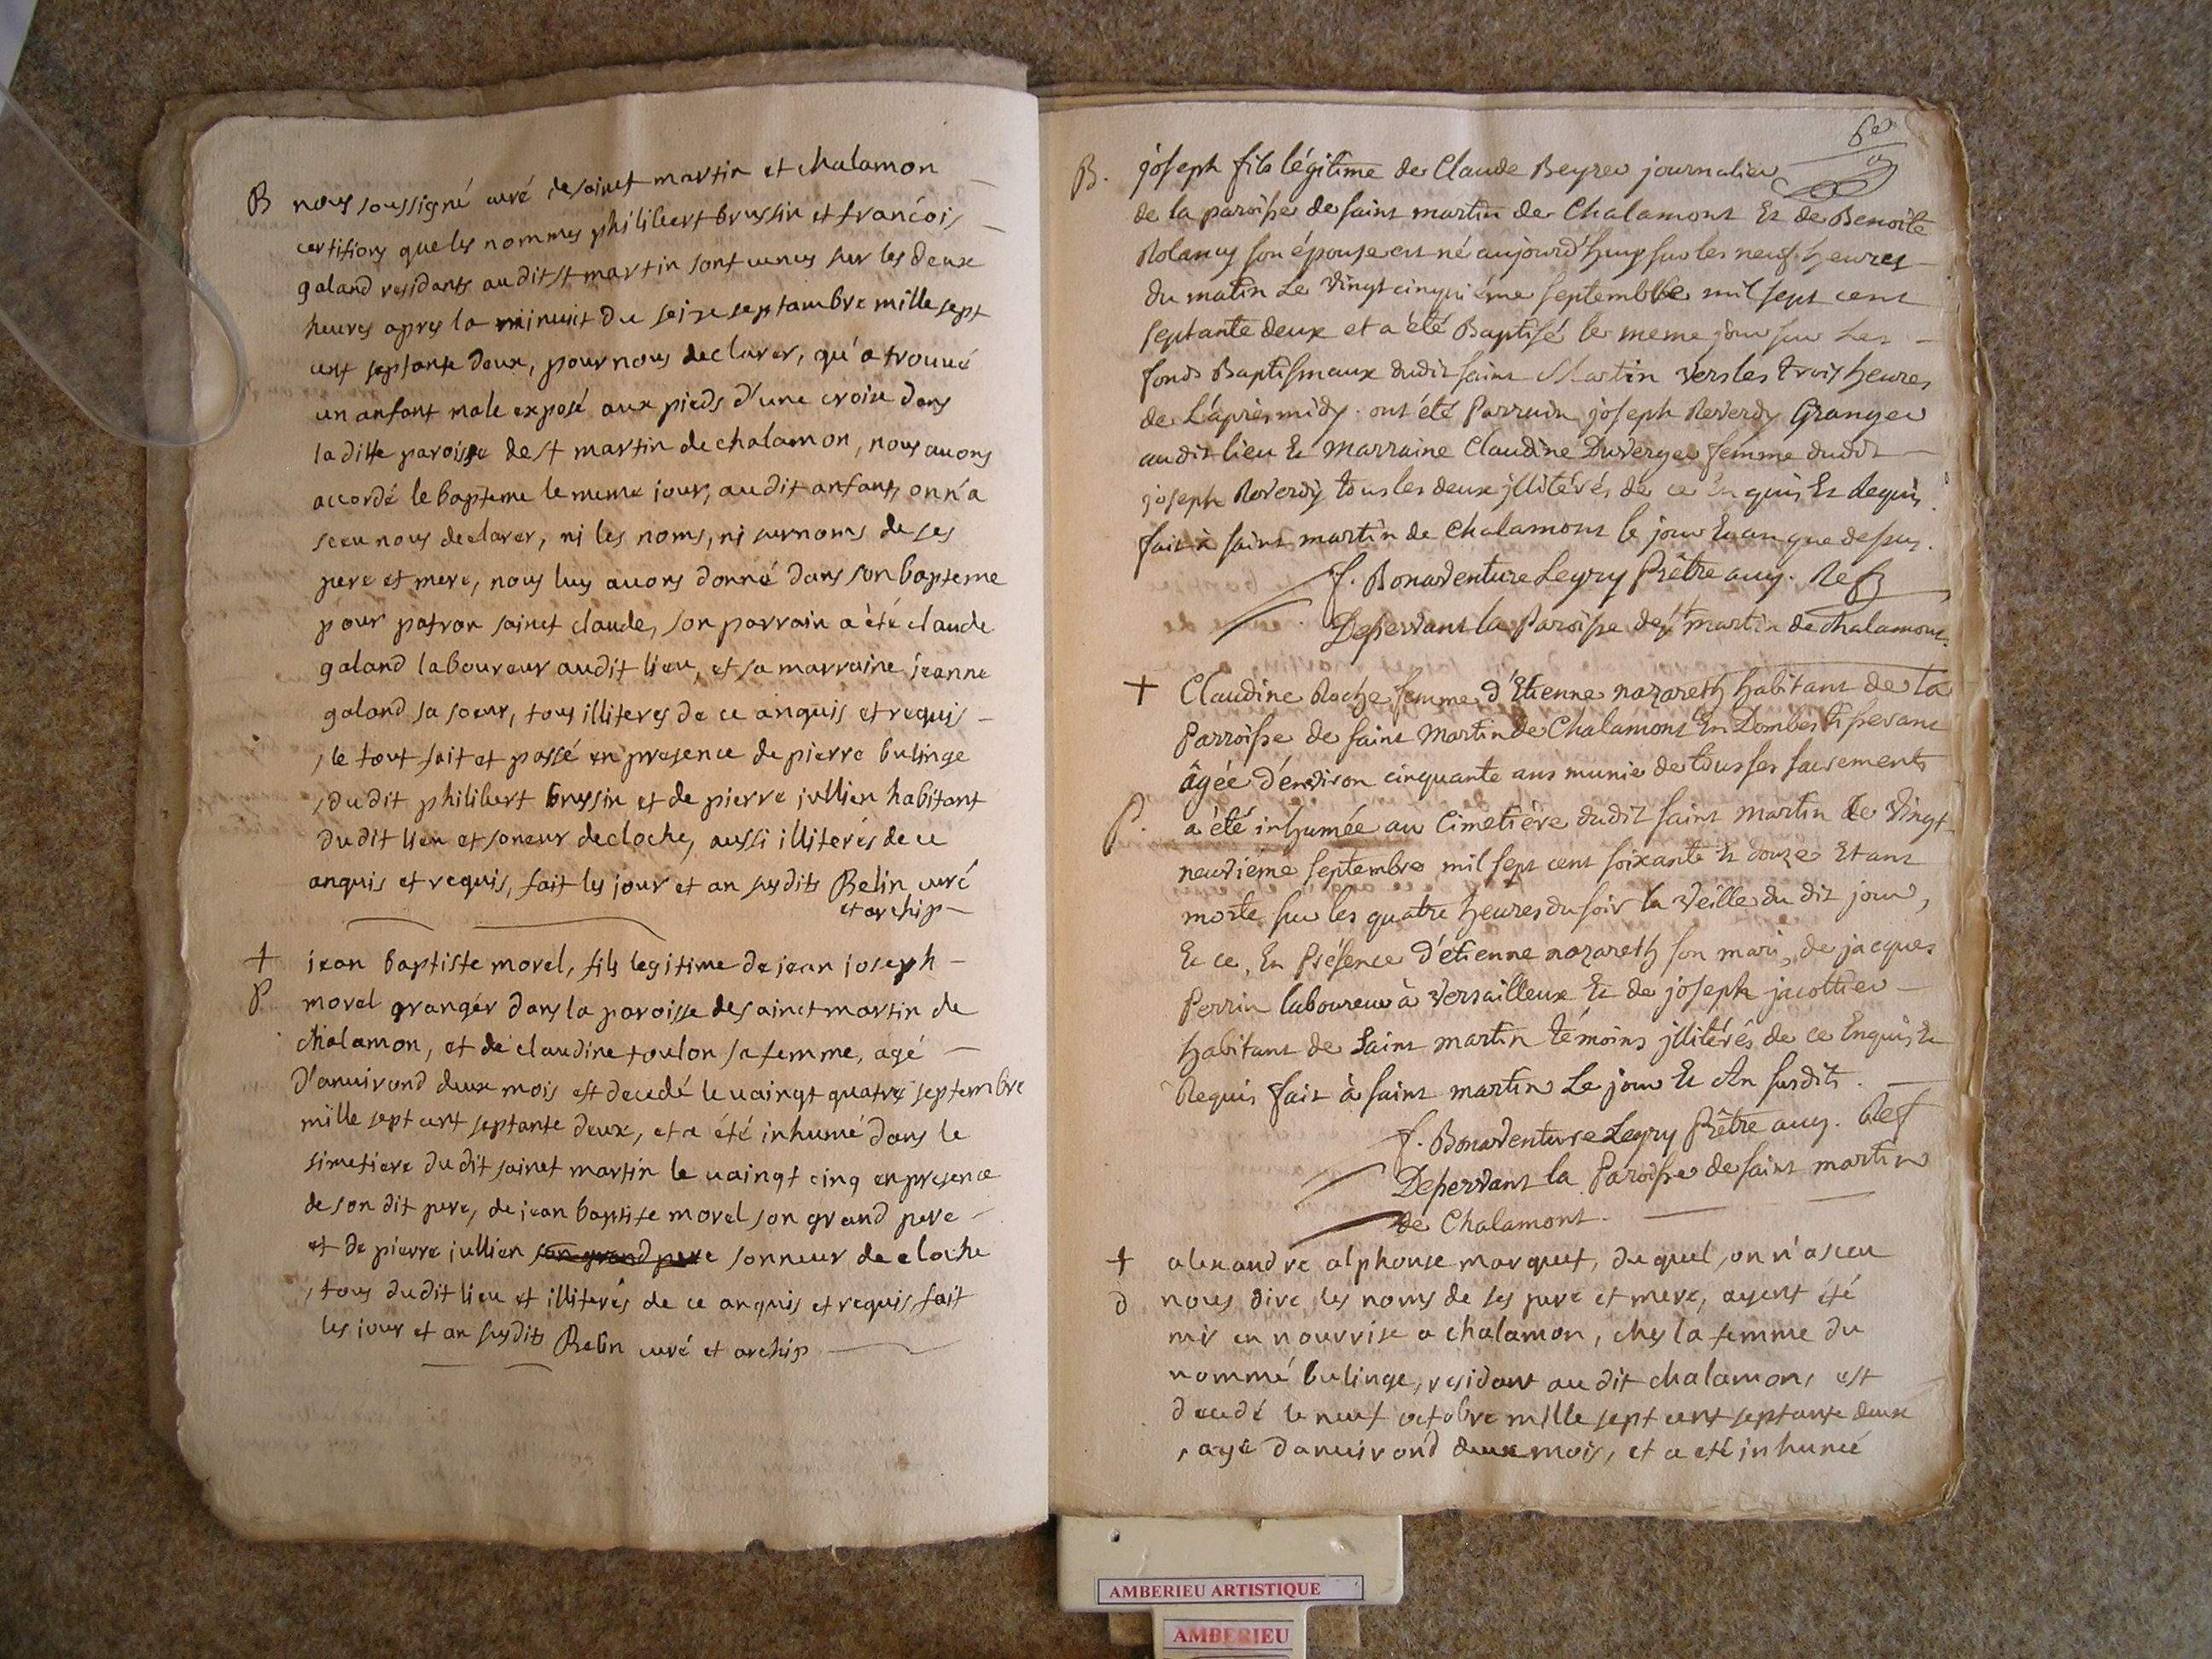 B nous soussigné curé de sainct martin et chalamon
certifions que les nommes philibert brussin et francois
galand residants au dit st martin sont venus sur les deux
heures apres la minuit du seize septambre mille sept
cent septante deux, pour nous declarer, qu'a trouué
un anfant male exposé aux pieds d'une croix dans
la ditte paroisse de st martin de chalamon, nous auons
accordé le bapteme le meme jour, au dit anfant, on n'a
sceu nous declarer, ni les noms, ni surnoms de ses
pere et mere, nous luy auons donné dans son bapteme
pour patron sainct claude, son parrain a èté claude
galand laboureur au dit lieu, et sa marraine jeanne
galand sa soeur, tous illiteres de ce anquis et requis
, le tout fait et passé en presence de pierre bulinge
, du dit philibert brussin et de pierre jullien habitant
du dit lieu et soneur de cloche, aussi illiterés de ce
anquis et requis, fait les jour et an susdits Belin curé
et archip
+ jean baptiste morel, fils legitime de jean joseph
P morel grangér dans la paroisse de sainct martin de
chalamon, et de claudine toulon sa femme, agé
d'anuirond deux mois est decedé le uaingt quatre septembre
mille sept cent septante deux, et a été inhumé dans le
simetiere du dit sainct martin le uaingt cinq en presence
de son dit pere, de jean baptiste morel son grand pere
et de pierre jullien son grand pere sonneur de cloche
, tous du dit lieu et illiterés de ce anquis et requis, fait
les jour et an susdits Belin curé et archip
B. joseph fils légitime de Claude Beyre journalier
de la paroisse de saint martin de Chalamont Et de Benoite
Rolancy son épouse est né aujourd'huy sur les neuf heures
du matin Le vingt cinquiéme septembre mil sept cent
septante deux et a été Baptisé le meme jour sur Les
fonds Baptismaux dudit saint Martin vers les trois heures
de L'après midy. ont été Parrain joseph Reverdy Granger
audit lieu Et Marraine Claudine Duverger femme dudit
joseph Reverdy tous les deux jllitérés de ce Enquis Et Requis.
fait à saint martin de Chalamont le jour Et an que dessus.
f. Bonaventure Legry Prêtre aug. Ref
Deservant la Paroisse de st martin de chalamont.
+ Claudine Roche femme d'Etienne nazareth habitant de la
Parroisse de saint Martin de Chalamont En Dombes tisserant
âgée d'environ cinquante ans munie de tous ses sacrements
P. a été inhumée au Cimetière dudit saint Martin Le vingt
neuvieme septembre mil sept cent soixante Et douze Etant
morte sur les quatre heures du soir la veille du dit jour,
Et ce, En Présence d'étienne nazareth son mari, de jacques
Perrin laboureur à Versailleux Et de joseph jacottier
habitant de Saint martin témoins jllitérés de ce Enquis Et
Requis fait à saint martin Le jour Et An susdits.
f. Bonaventure Legry Prêtre aug. Ref
Deservant la Paroisse de saint martin
de Chalamont.
+ alexandre alphonse marquet, du quel, on n'a sceu
d nous dire, les noms de ses pere et mere, ayent été
mis en nourrise a chalamon, ches la femme du
nommé bulinge, residant au dit chalamon, est
decedé le neuf octobre mille sept cent septante deux
, agé d'anuirond deux mois, et a eté inhumé
AMBERIEU ARTISTIQUE
AMBERIEU